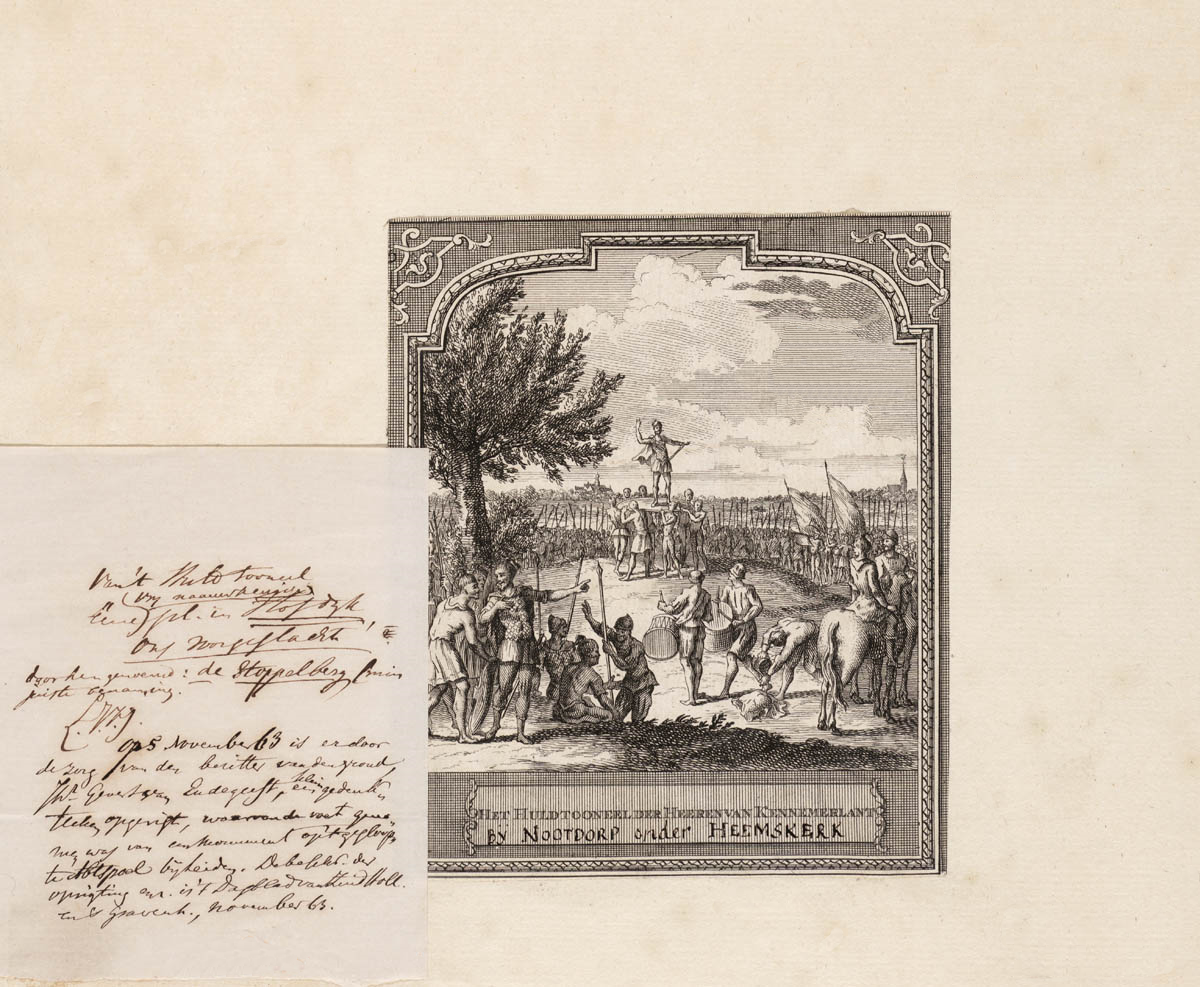 Van't Huldtooneel
(vrij naauwkeurige)
eene pl. in Hofdijk
Ons Voorgeslacht,
door hem genoemd: de Stoppelberg
juiste benaming.
op 5 November 63 is er door
de zorg van den bezitter van den grond,
Jhr. Gevers van Endegeest, een klein gedenk-
teeken opgerigt, waarvan de voet
was van een monument op 't gesloopte
bij Leiden. De beschr. der
oprigting enz. is 't Dagblad van Zuid Holl.
en 's Gravenh., November 63.
HET HULDTOONEEL DER HEEREN VAN KENNEMERLANT
BY NOOTDORP onder HEEMSKERK